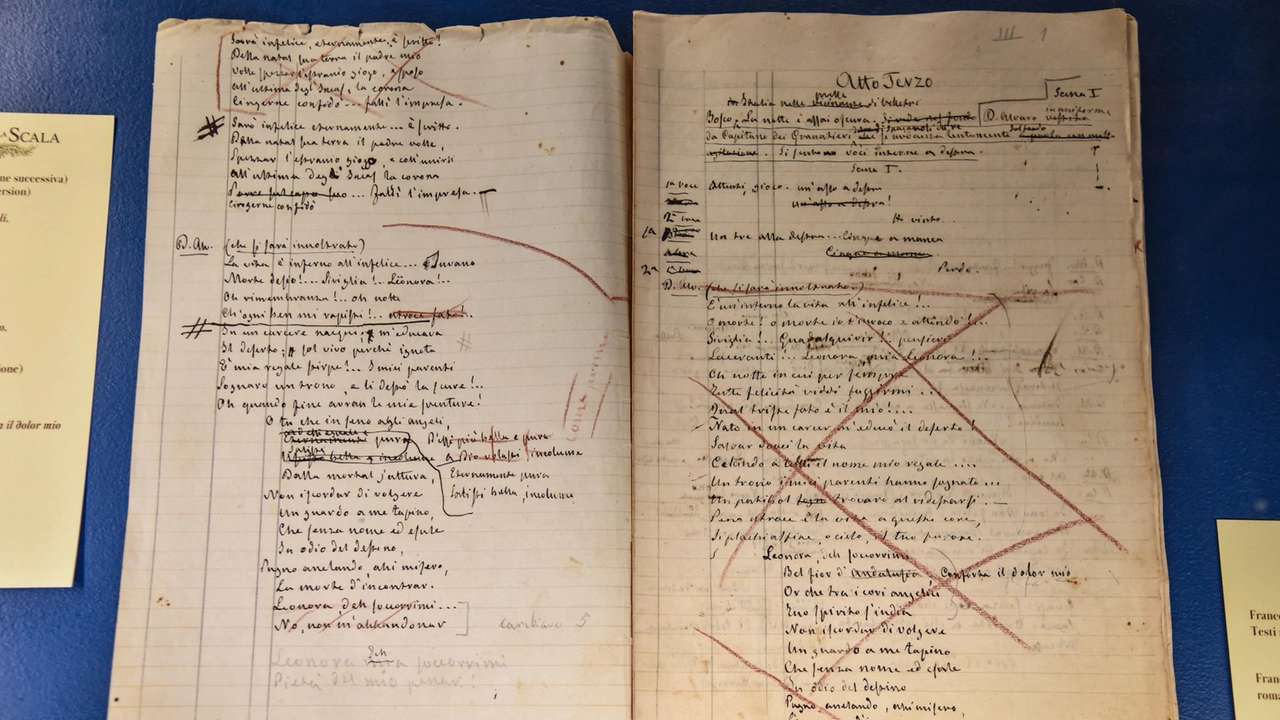 LA SCALA
ne successiva)
ersion)
di.
o.
ione)
n il dolor mio
Sarò infelice, eternamente, è scritto!
Della natal sua terra il padre mio
Volle spezzar l'estranio giogo, e sposo
All'ultima degl'Incas, la corona
Cingerne confidò... fallì l'impresa.
Sarò infelice eternamente... è scritto.
Della natal sua terra il padre volle,
Spezzar l'estranio giogo e coll'unirsi
All'ultima degl'Incas la corona
suo... Fallì l'impresa.
Cingerne confidò
D. Alv. (che si sarà innoltrato)
La vita è inferno all'infelice... Invano
Morte desio!... Siviglia!... Leonora!...
Oh rimembranza!.. oh notte
Ch'ogni ben mi rapisti!.. atroce fato!..
In un carcere nacqui; m'educava
Il deserto; sol vivo perchè ignota
È mia regale stirpe!... I miei parenti
Sognaro un trono e li destò la scure!..
Oh quando fine avran le mie sventure!
O tu che in seno agli angeli
Eternamente pura
D'essi più bella e pura
a Dio volasti incolume
Eternamente pura
Salisti bella, incolume
Dalla mortal jattura,
Non iscordar di volgere
Un guardo a me tapino,
Che senza nome ed esule
In odio del destino,
Pugno anelando, ahi misero,
La morte d'incontrar.
Leonora deh soccorrimi...
No, non m'abbandonar
cambiare 5
Deh
Leonora mia soccorrimi
Pietà del mio penar!
come prima
III 1
Atto Terzo
Scena I
in Italia nelle vicinanze di Velletri
presso
Bosco. La notte è assai oscura. D. Alvaro in uniforme
da Capitano dei Granatieri si avanza lentamente
agitazione. Si sentono voci interne a destra.
Scena I.
1a voce Attenti, gioco. un'asso a destra
un'asso a destra!
Ho vinto.
1a Un tre alla destra... Cinque a manca
Cinque a manca
2a Perdo.
D. Alv. (che si sarà innoltrato.)
È un inferno la vita all'infelice!...
O morte! o morte io t'invoco e attendo!...
Siviglia!... Guadalquivir! pensieri
Laceranti... Leonora, mia Leonora!...
Oh notte in cui per sempre
Tutte felicità vidi fuggirmi...
Qual triste fato è il mio!...
Nato in un carcer m'educò il deserto!
la vita
Celando a tutti il nome mio regale....
Un trono i miei parenti hanno sognato...
Un patibol trovaro al ridestarsi.
Pena atroce è la vita a questo core,
Si plachi alfine, o cielo, il tuo furore.
Leonora, deh soccorrimi
Bel fior d'Andalusia Conforta il dolor mio
Or che tra i cori angelici
Tuo spirito s'india
Non iscordar di volgere
Un guardo a me tapino
Che senza nome ed esule
In odio del destino
Pugno anelando, ahi misero,
Franc
Testi
Franc
roma